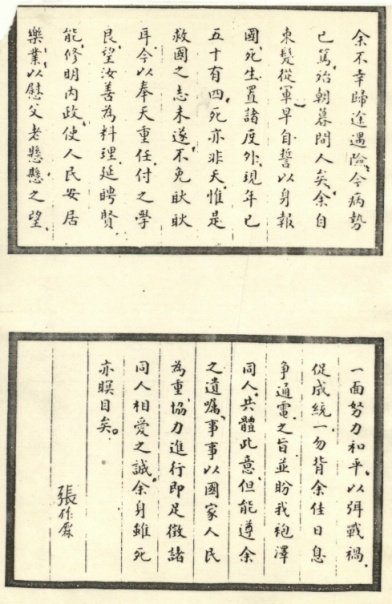 余不幸歸途遇險今病勢
已篤殆朝暮間人矣余自
束髮從軍早自誓以身報
國死生置諸度外現年已
五十有四死亦非夭惟是
救國之志未遂不免耿耿
耳今以奉天重任付之學
良望汝善為料理延聘賢
能修明內政使人民安居
樂業以慰父老懸懸之望
一面努力和平以弭戰禍
促成統一勿背余佳日息
爭通電之旨並盼我袍澤
同人共體此意但能遵余
之遺囑事事以國家人民
為重協力進行即足徵諸
同人相愛之誠余身雖死
亦瞑目矣。
張作霖